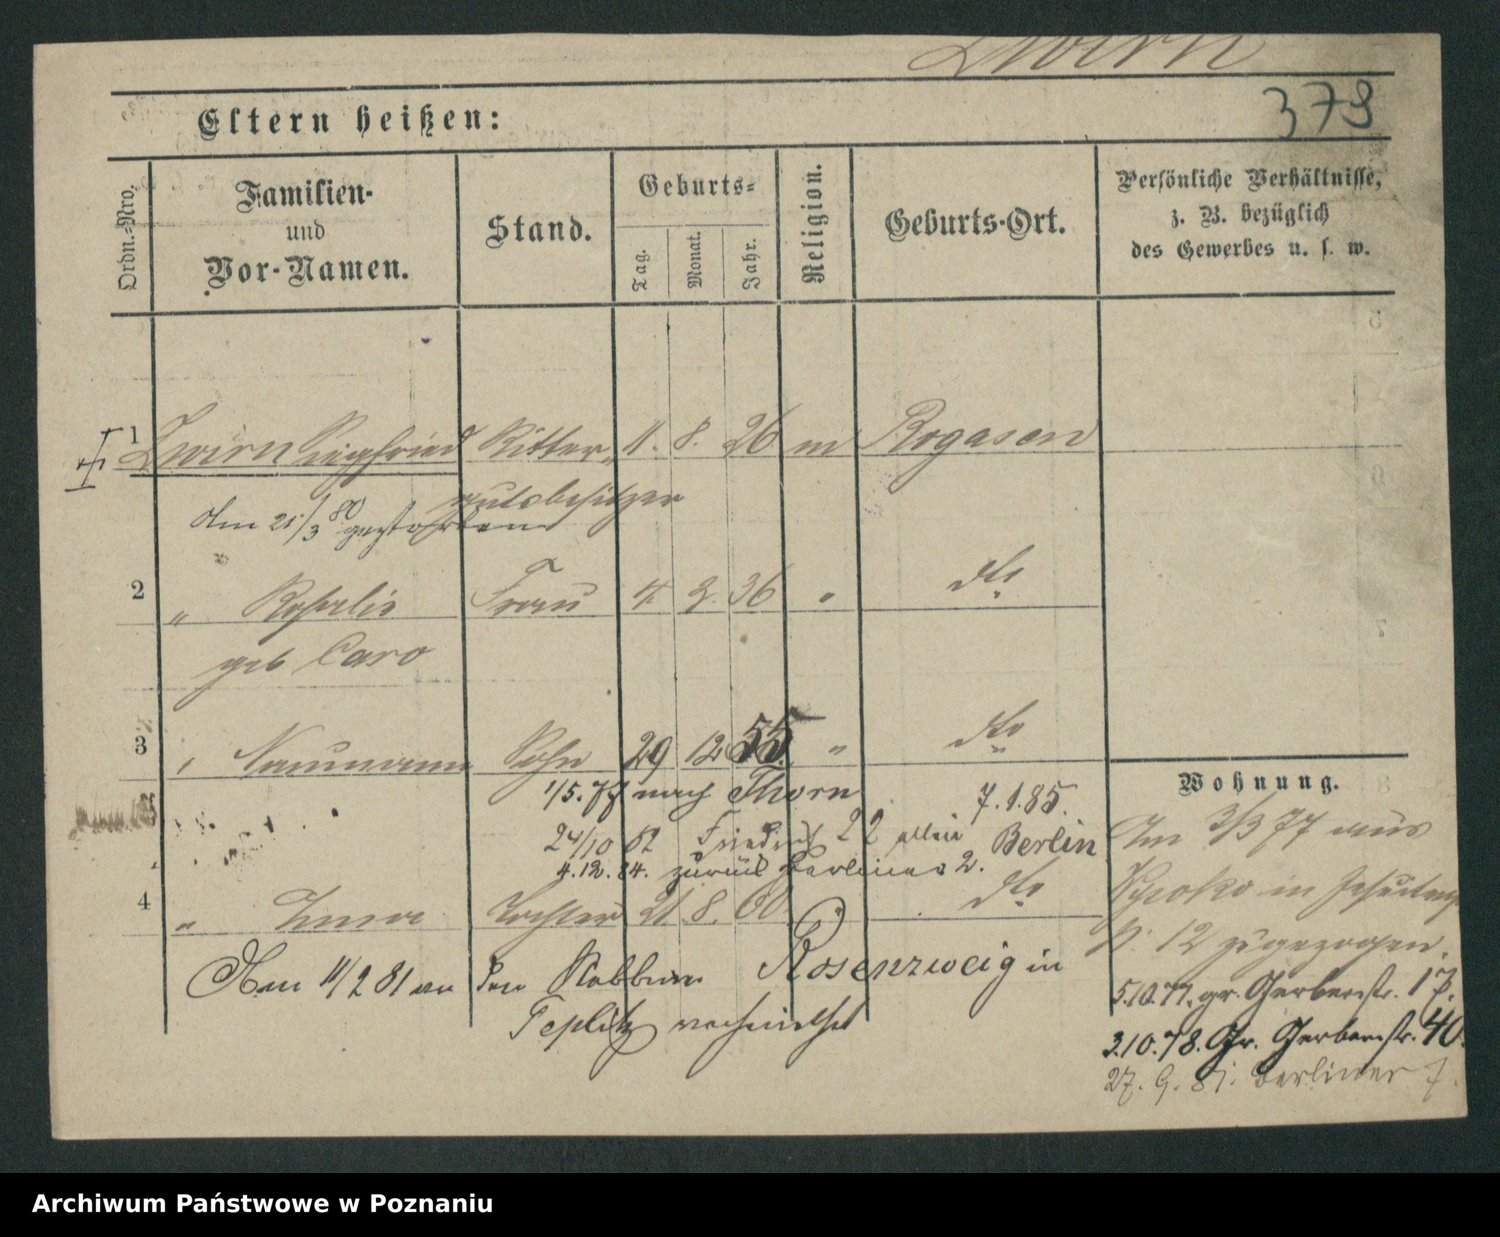 Zwirn
379
Eltern heißen:
Ordn.-Nro.
Familien-
und
Vor-Namen.
Stand.
Geburts-
Tag.
Monat.
Jahr.
Religion.
Geburts-Ort.
Persönliche Verhältnisse,
z. B. bezüglich
des Gewerbes u. s. w.
1 Zwirn Siegfried Ritter- 11. 8. 26 m Rogasen
gutsbesitzer
Am 25/3 80 gestorben
2 " Rosalie Frau 4. 2. 36 " dto
geb Caro
3 " Naumann Sohn 29 12 55 " dto
1/5. 78 nach Thorn 7.1.85.
24/10 82 22 allein Berlin
4.12.84. zurück Berliner 2.
4 " Tochter 21. 8. 60 dto
Am 11/2 81 an den Rabbiner Rosenzweig in
Teplitz verheirathet
Wohnung.
Am 3/3 77 aus
in
N. 12 zugezogen.
5.10.77. gr. Gerberstr. 17.
3.10.78. Gr. Gerberstr. 40.
27. 9. 81. Berliner 7.
Archiwum Państwowe w Poznaniu